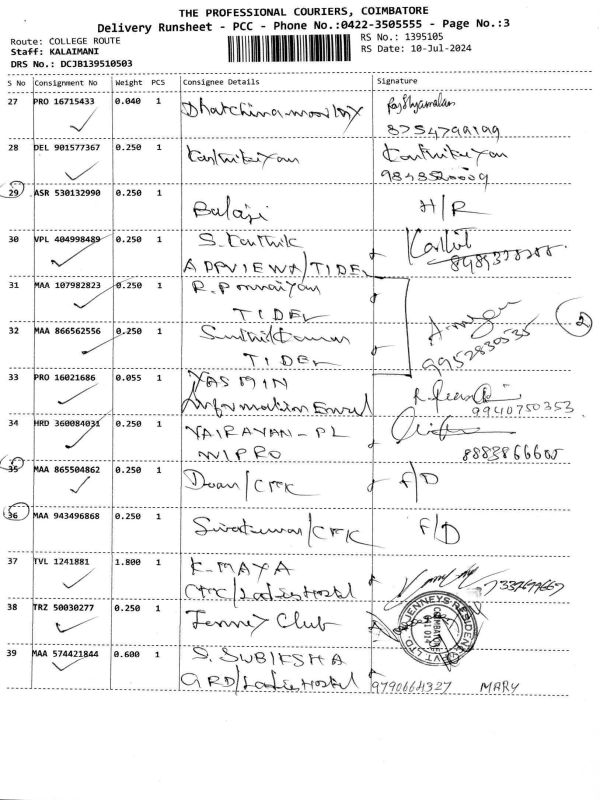 THE PROFESSIONAL COURIERS, COIMBATORE
Delivery Runsheet - PCC - Phone No.:0422-3505555 - Page No.:3
Route: COLLEGE ROUTE
Staff: KALAIMANI
DRS No.: DCJB139510503
RS No.: 1395105
RS Date: 10-Jul-2024
S No Consignment No Weight PCS Consignee Details Signature
27 PRO 16715433 0.040 1
8754799199
28 DEL 901577367 0.250 1 Karthikeyan Karthikeyan
29 ASR 530132990 0.250 1 Balaji H/R
30 VPL 404998489 0.250 1 S. Karthik
/TIDEL
31 MAA 107982823 0.250 1 R. Ponnaiyan
TIDEL
32 MAA 866562556 0.250 1 Senthilkumar
TIDEL
9952830535
2
33 PRO 16021686 0.055 1 YASMIN
Information
9940750353
34 HRD 360084031 0.250 1 VAIRAVAN-PL
WIPRO
35 MAA 865504862 0.250 1 F/D
36 MAA 943496868 0.250 1 Sivakumar/ F/D
37 TVL 1241881 1.800 1 K. MAYA
/Ladies Hostel
38 TRZ 50030277 0.250 1 Jenney Club
JENNEYS RESIDENCY PVT LTD
COIMBATORE
641 014
39 MAA 574421844 0.600 1 S. SUBIKSHA
GRD/Ladies Hostel 9790664327 MARY